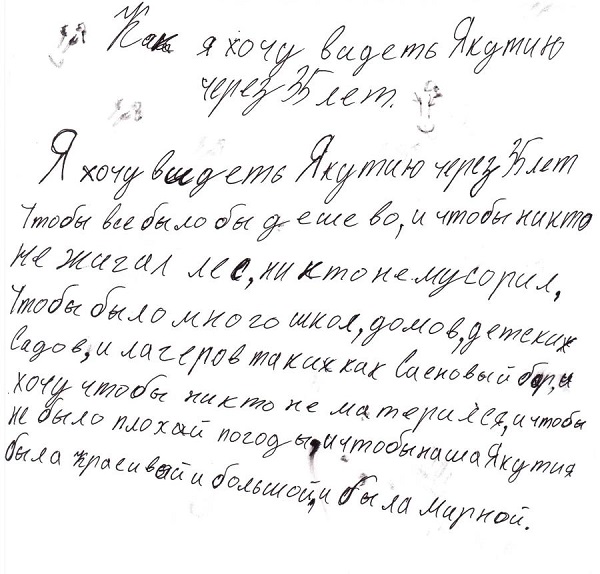 Как я хочу видеть Якутию
через 35 лет.
Я хочу видеть Якутию через 35 лет
Чтобы все было бы дешево, и чтобы никто
не жигал лес, никто не мусорил,
Чтобы было много школ, домов, детских
садов, и лагеров таких как Сасновый бор, и
хочу чтобы никто не матерился, и чтобы
не было плохай погоды, и чтобы наша Якутия
была красивай и большой, и была мирной.